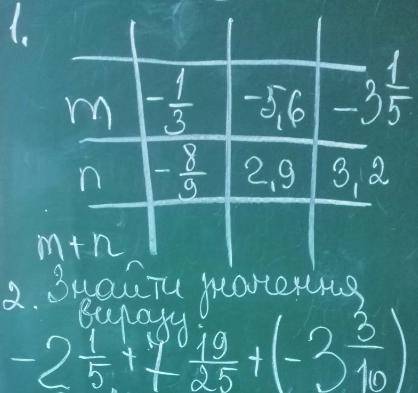 1.
m -1/3 -5,6 -3 1/5
n -8/9 2,9 3,2
m+n
2. Знайти значення
виразу
-2 1/5 + 7 - 19/25 + (-3 3/10)